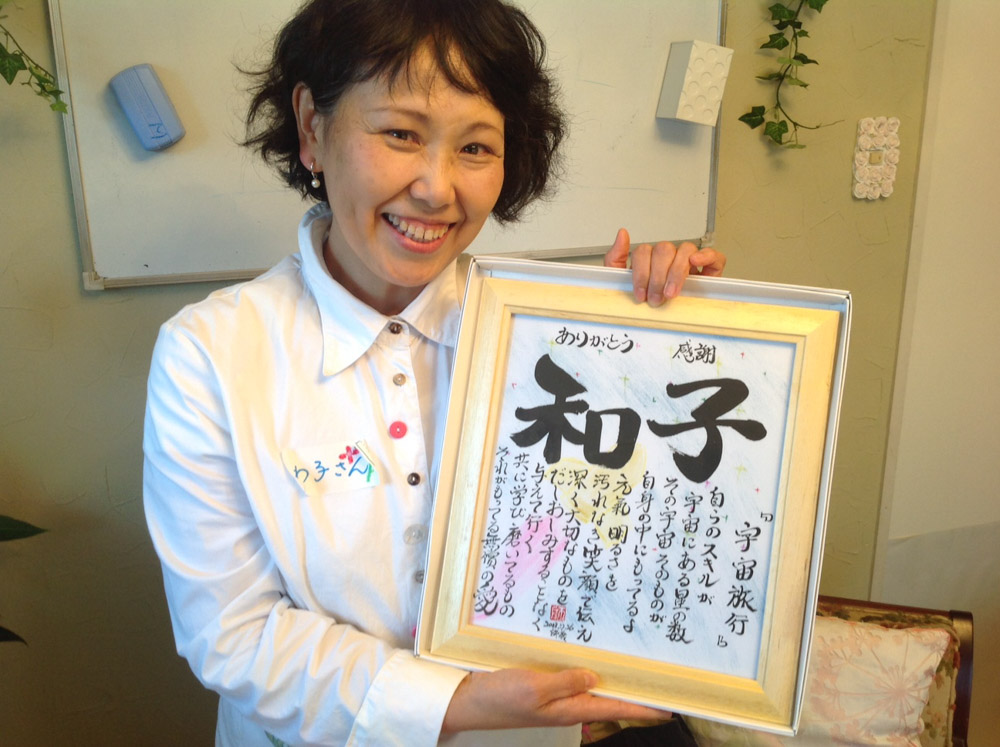 ありがとう 感謝
和子
『宇宙旅行』
自分のスキルが
宇宙にある星の数
その宇宙そのものが
自身の中にもってるよ
元氣 明るさを
汚れなき笑顔で伝え
深く大切なものを
だしおしみすることなく
与えて行く
共に学び磨いてるもの
それがもってる無償の愛
わ子さん